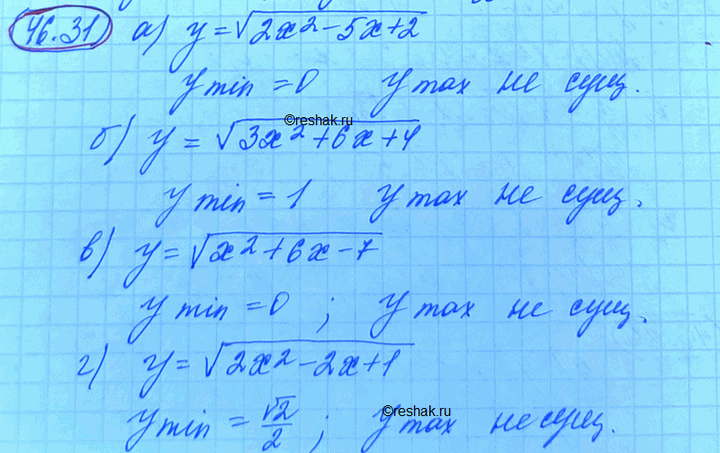 46.31) а) y = √(2x² - 5x + 2)
y min = 0 y max не сущ.
©reshak.ru
б) y = √(3x² + 6x + 4)
y min = 1 y max не сущ.
в) y = √(x² + 6x - 7)
y min = 0 ; y max не сущ.
г) y = √(2x² - 2x + 1)
©reshak.ru
y min = √2/2 ; y max не сущ.